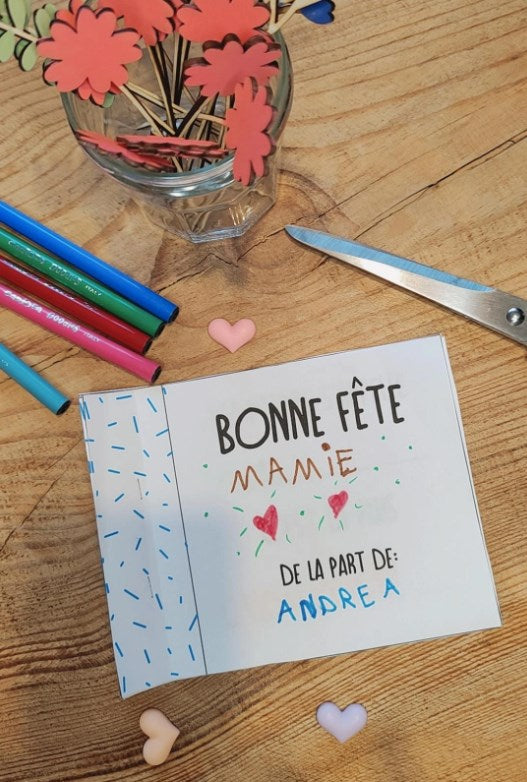 BONNE FÊTE
MAMIE
DE LA PART DE:
ANDREA